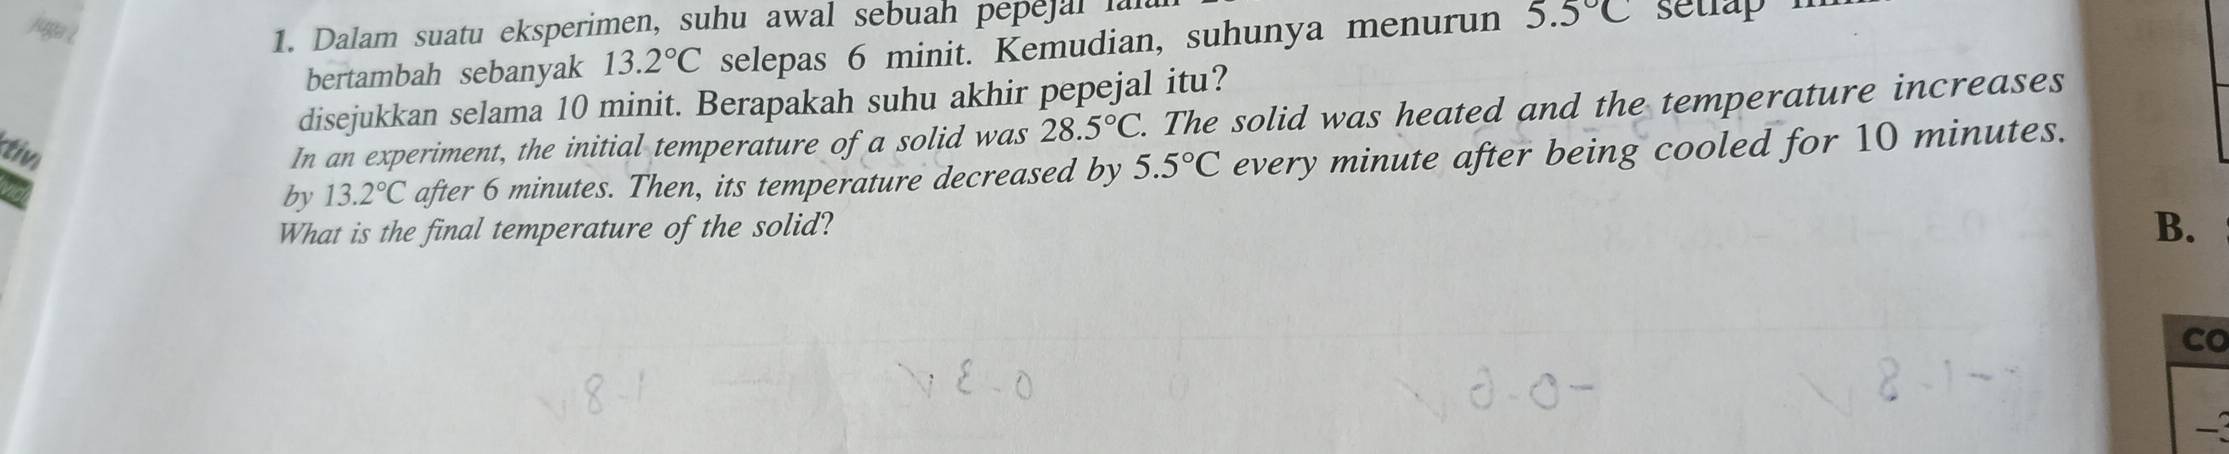 1. Dalam suatu eksperimen, suhu awal sebuah pepejal
bertambah sebanyak 13.2°C selepas 6 minit. Kemudian, suhunya menurun 5.5°C setiap
disejukkan selama 10 minit. Berapakah suhu akhir pepejal itu?
In an experiment, the initial temperature of a solid was 28.5°C. The solid was heated and the temperature increases
by 13.2°C after 6 minutes. Then, its temperature decreased by 5.5°C every minute after being cooled for 10 minutes.
What is the final temperature of the solid?
B.
CO